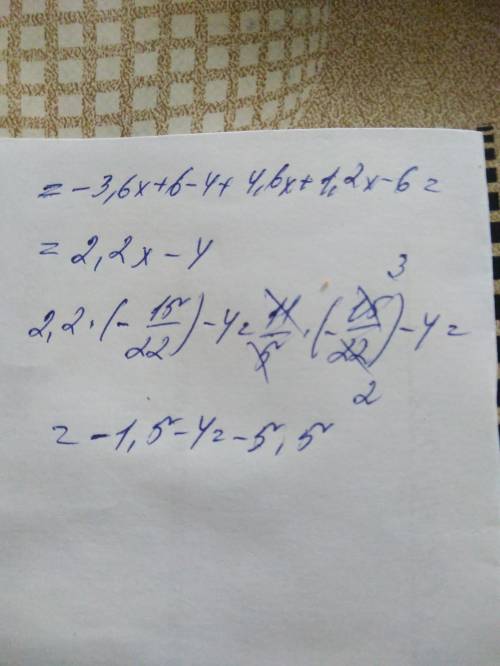 = -3,6x+6-4+4,6x+1,2x-6=
= 2,2x-4
2,2·(-15/22)-4=11/5·(-15/22)-4=
3
2
= -1,5-4=-5,5